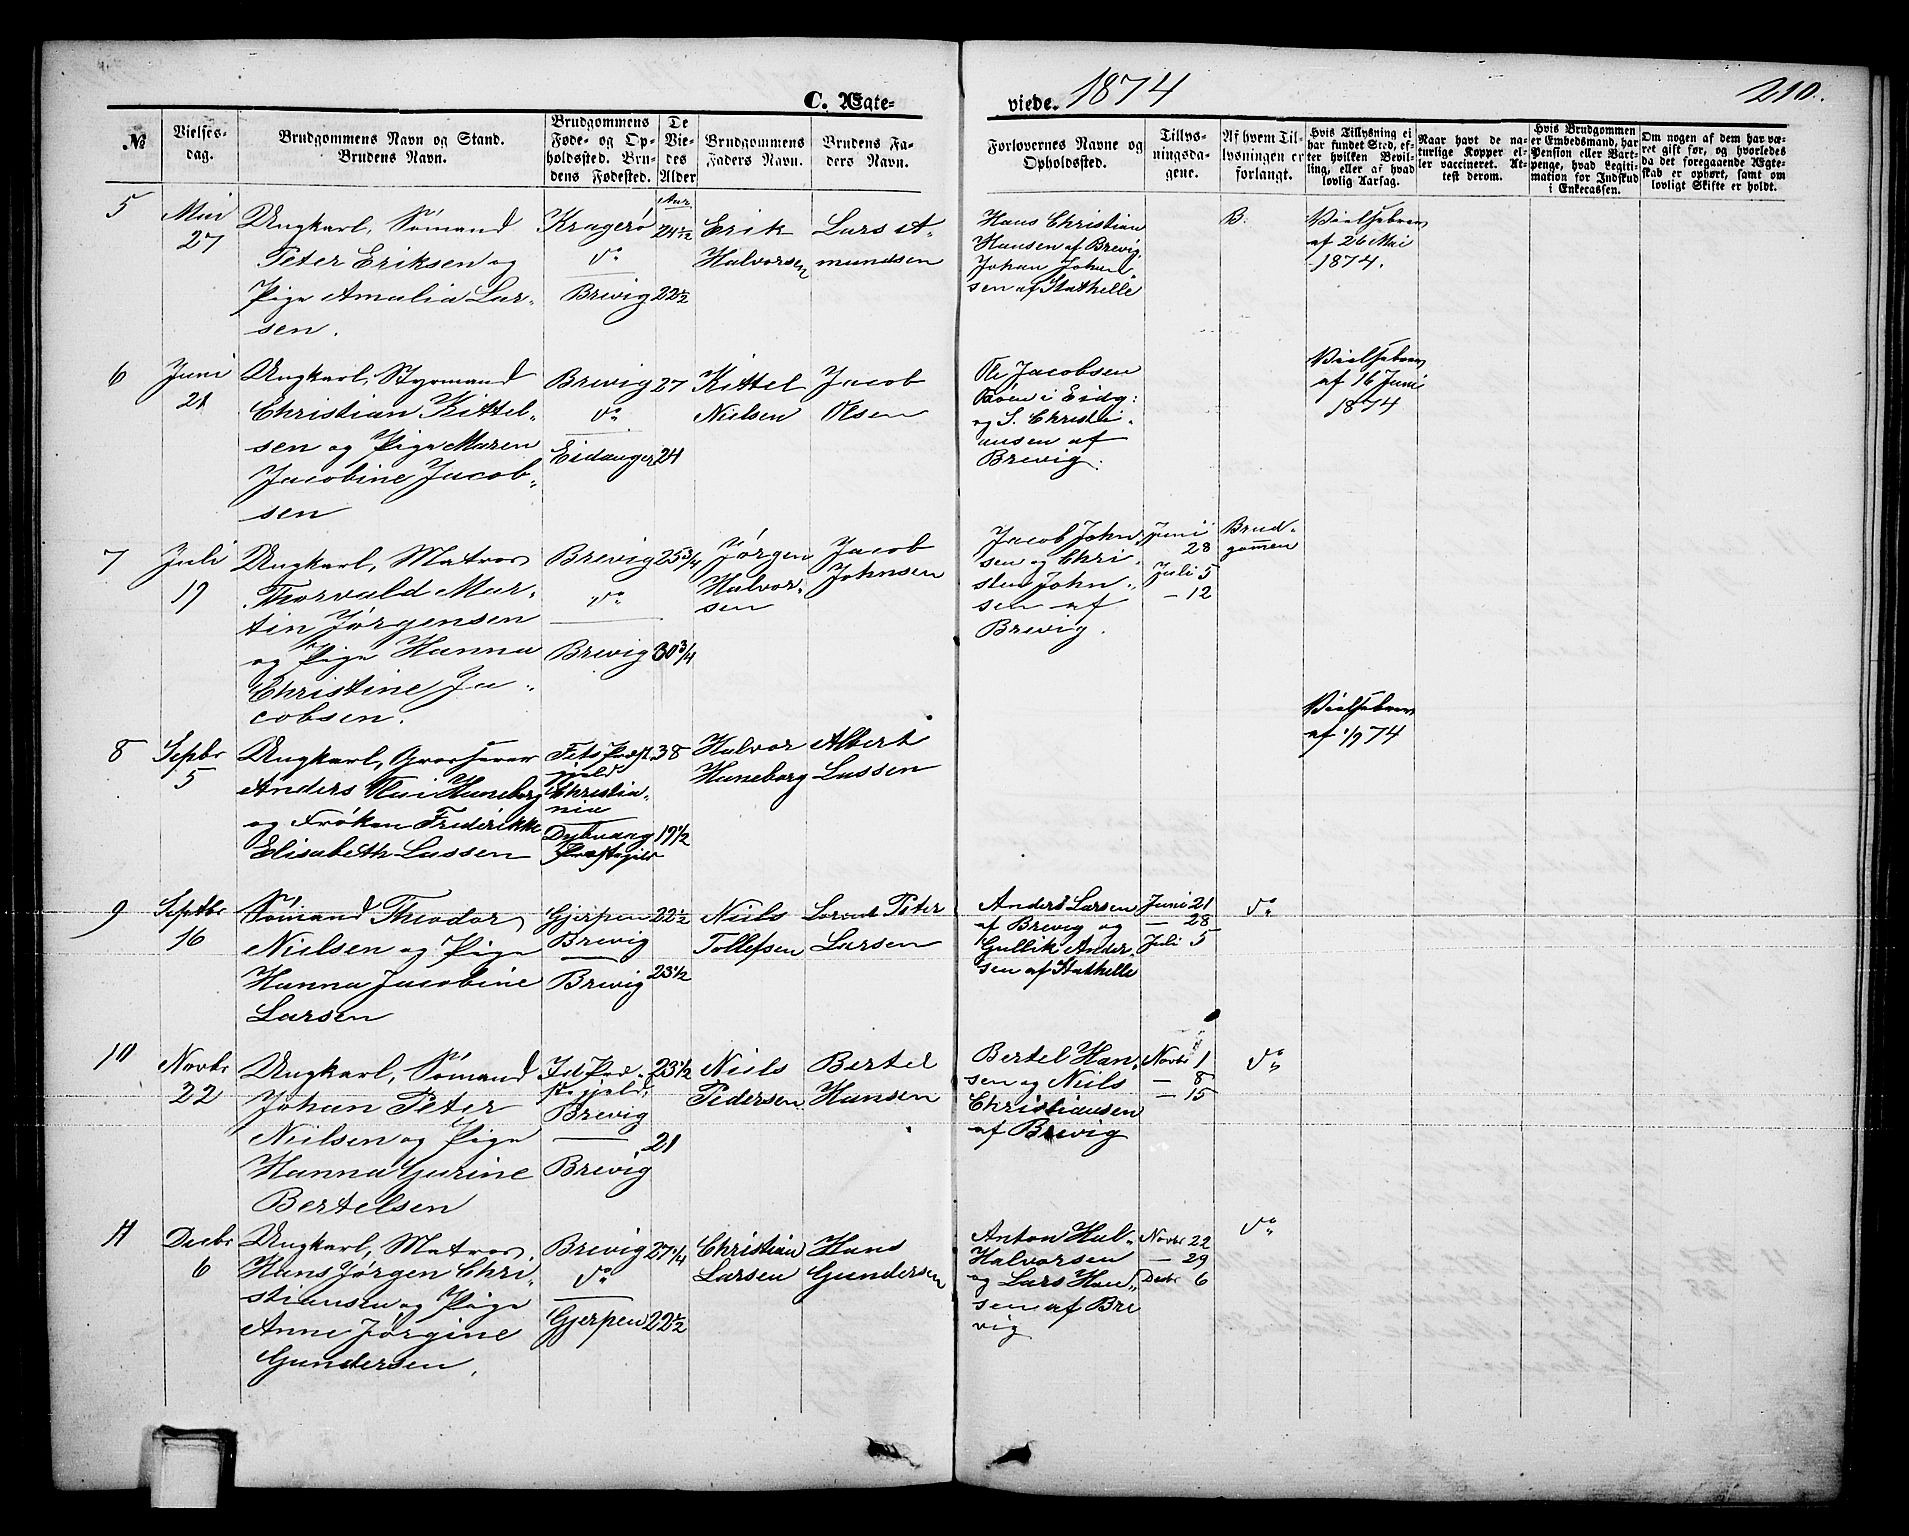 C. Ægte-
viede. 1874
210.
№
Vielses-
dag.
Brudgommens Navn og Stand.
Brudens Navn.
Brudgommens
Føde- og Op-
holdssted. Bru-
dens Fødested.
De
Vie-
des
Alder
Brudgommens
Faders Navn.
Brudens Fa-
ders Navn.
Forlovernes Navne og
Opholdssted.
Tillys-
ningsda-
gene.
Af hvem Til-
lysningen er
forlangt.
Hvis Tillysning ei
har fundet Sted, ef-
ter hvilken Bevil-
ling, eller af hvad
lovlig Aarsag.
Naar havt de na-
turlige Kopper el-
ler vaccineret. At-
test derom.
Hvis Brudgommen
er Embedsmand, har
Pension eller Vart-
penge, hvad Legiti-
mation for Indskud
i Enkecassen.
Om nogen af dem har væ-
ret gift før, og hvorledes
da det foregaaende Ægte-
skab er ophørt, samt om
lovligt Skifte er holdt.
5
Mai
27
Ungkarl, Sömand
Peter Eriksen og
Pige Amalia Lar-
sen.
Kragerö
do
Brevig
Aar.
24 1/2
22 1/2
Erik
Halvorsen
Lars A-
mundsen
Hans Christian
Hansen af Brevig.
Johan Johan-
sen af Stathelle
B.
Vielsebrev
af 26 Mai
1874.
6
Juni
21
Ungkarl, Styrmand
Christian Kittel-
sen og Pige Maren
Jacobine Jacob-
sen
Brevig
do
Eidanger
27
24
Kittel
Nielsen
Jacob
Olsen
Ole Jacobsen
i Eidg:
og S. Christi-
ansen af
Brevig.
Vielsebrev
af 16 Juni
1874
7
Juli
19
Ungkarl, Matros
Thorvald Mar-
tin Jørgensen
og Pige Hanna
Christine Ja-
cobsen.
Brevig
do
Brevig
25 3/4
30 3/4
Jørgen
Halvor-
sen
Jacob
Johnsen
Jacob John-
sen og Chri-
sten John-
sen af
Brevig.
Juni
28
Juli 5
— 12
Brud-
gommen
8
Septbr
5
Ungkarl, Grosserer
Anders Huneborg
og Fröken Frederikke
Elisabeth Lassen
Fets Præst-
gjeld
Christia-
nia
Dybvaag
Præstegjeld
38
19 1/2
Halvor
Huneborg
Albert
Lassen
Vielsebrev
af 1/9 74
9
Septbr
16
Sömand Theodor
Nielsen og Pige
Hanna Jacobine
Larsen
Gjerpen
Brevig
Brevig
22 1/2
23 1/2
Niels
Tollefsen
Lorents Peter
Larsen
Anders Larsen
af Brevig og
Gullik Ander-
sen af Stathelle
Juni 21
— 28
Juli 5
do
10
Novbr
22
Ungkarl, Sömand
Johan Peter
Nielsen og Pige
Hanna Gurine
Bertelsen
Id Præ-
stegjeld,
Brevig
Brevig
23 1/2
21
Niels
Pedersen
Bertel
Hansen
Bertel Han-
sen og Niels
Christiansen
af Brevig
Novbr 1
— 8
— 15
do
11
Decbr
6
Ungkarl, Matros
Hans Jørgen Chri-
stiansen og Pige
Anne Jørgine
Gundersen,
Brevig
do
Gjerpen
27 1/4
22 1/2
Christian
Larsen
Hans
Gundersen
Anton Hal-
Halvorsen
og Lars Han-
sen af Bre
vig
Novbr 22
— 29
Decbr 6
do